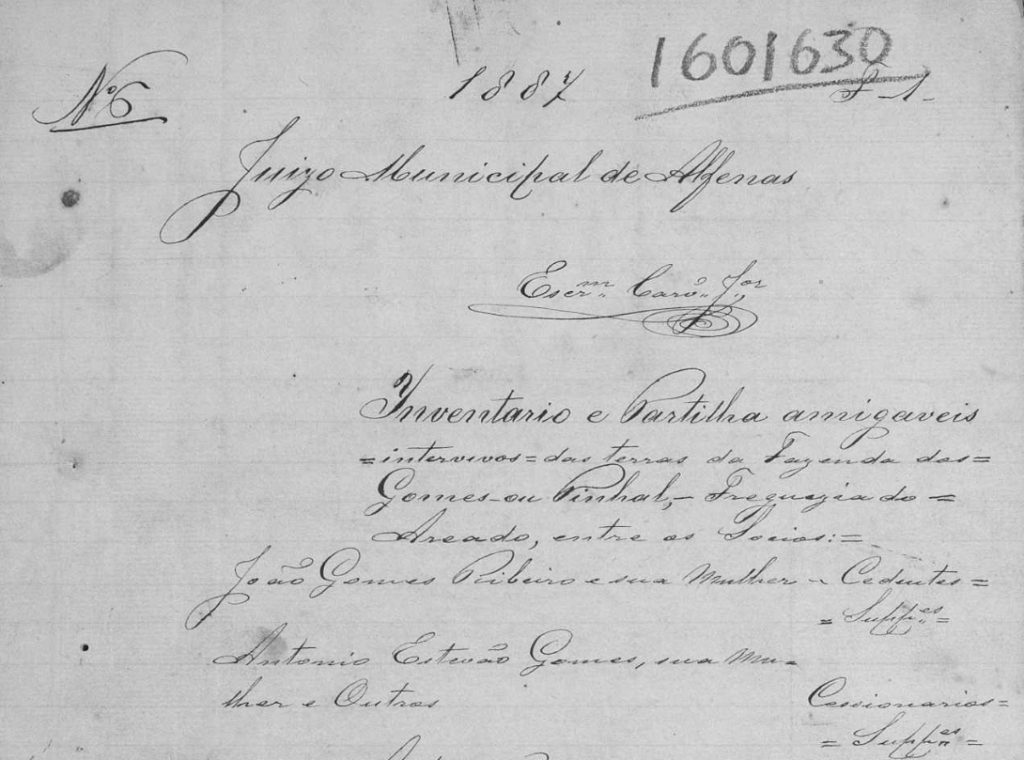 1601630
Nº 6
1887
f 1
Juizo Municipal de Alfenas
Escr.m Carv.º J.or
Inventario e Partilha amigaveis
=intervivos= das terras da Fazenda dos=
Gomes ou Pinhal,- Freguezia do =
Areado, entre os Socios:=
João Gomes Ribeiro e sua Mulher - Cedentes=
= Supp.es=
Antonio Estevão Gomes, sua Mu=
lher e Outros
Cessionarios=
= Supp.es=